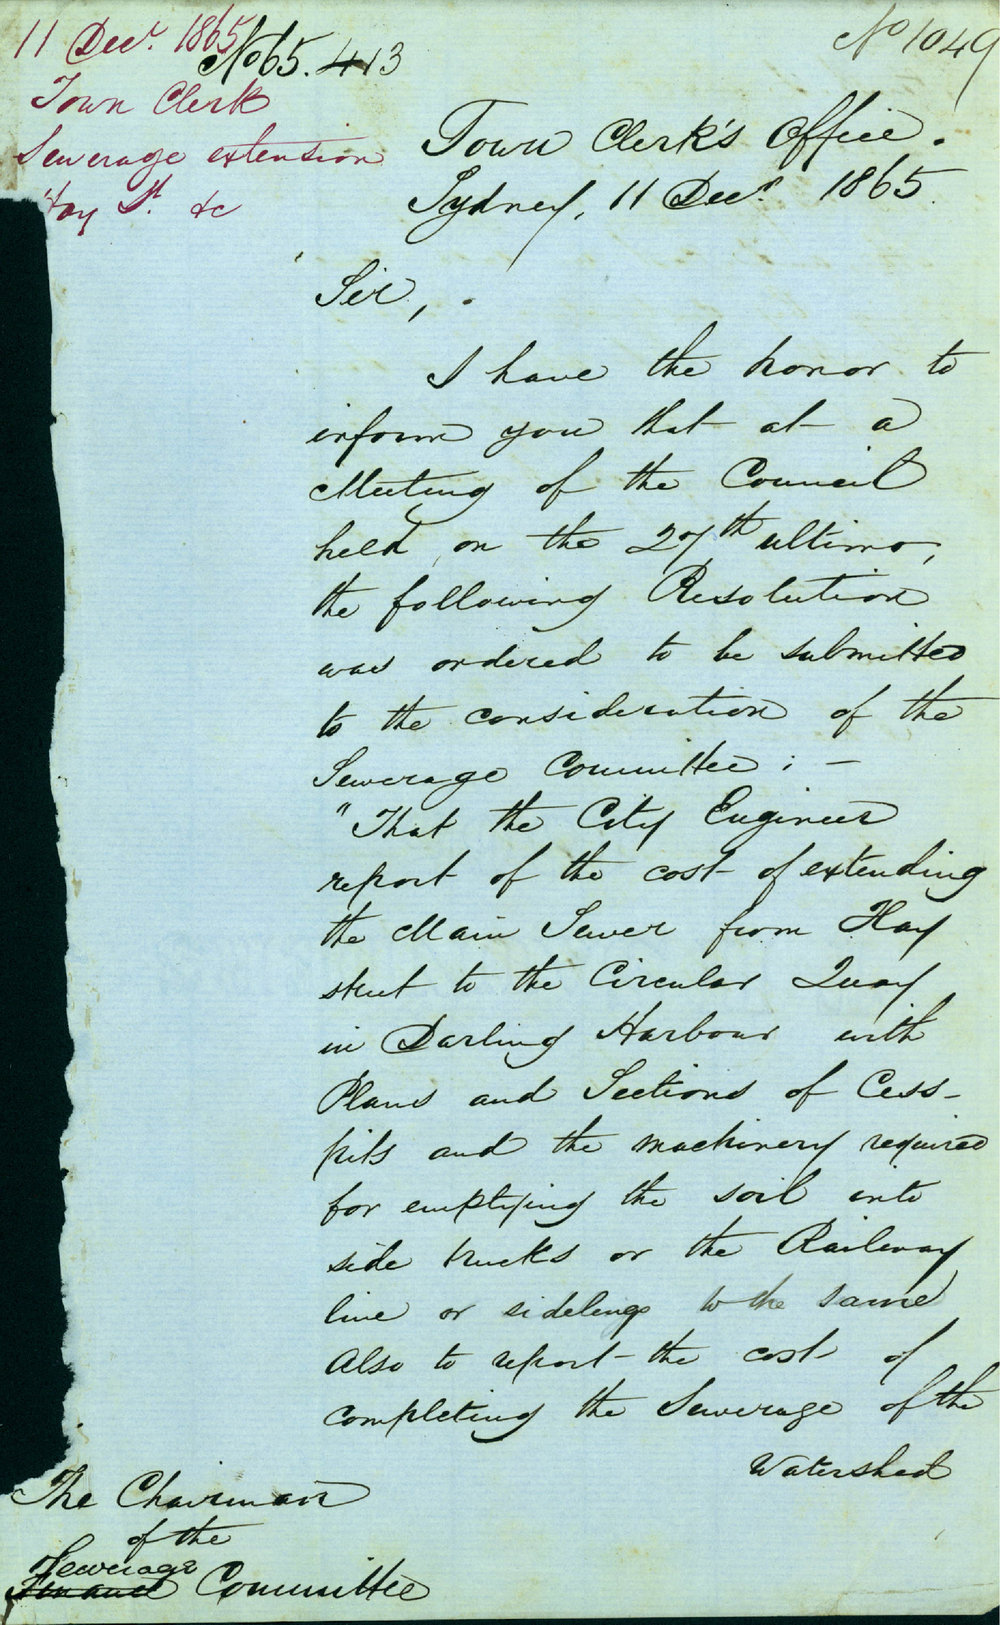 11 Decr. 1865
No 65.413
No 1049
Town Clerk
Sewerage extension
Hay St. &c
Town Clerk's Office.
Sydney, 11 Decr. 1865.
Sir,
I have the honor to
inform you that at a
Meeting of the Council
held on the 27th ultimo,
the following Resolution
was ordered to be submitted
to the consideration of the
Sewerage Committee : —
"That the City Engineer
report of the cost of extending
the Main Sewer from Hay
street to the Circular Quay
in Darling Harbour with
Plans and Sections of Cess-
pits and the machinery required
for emptying the soil into
side trucks or the Railway
line or sidelings to the same
Also to report the cost of
completing the Sewerage of the
Watershed
The Chairman
of the
Sewerage
Finance Committee